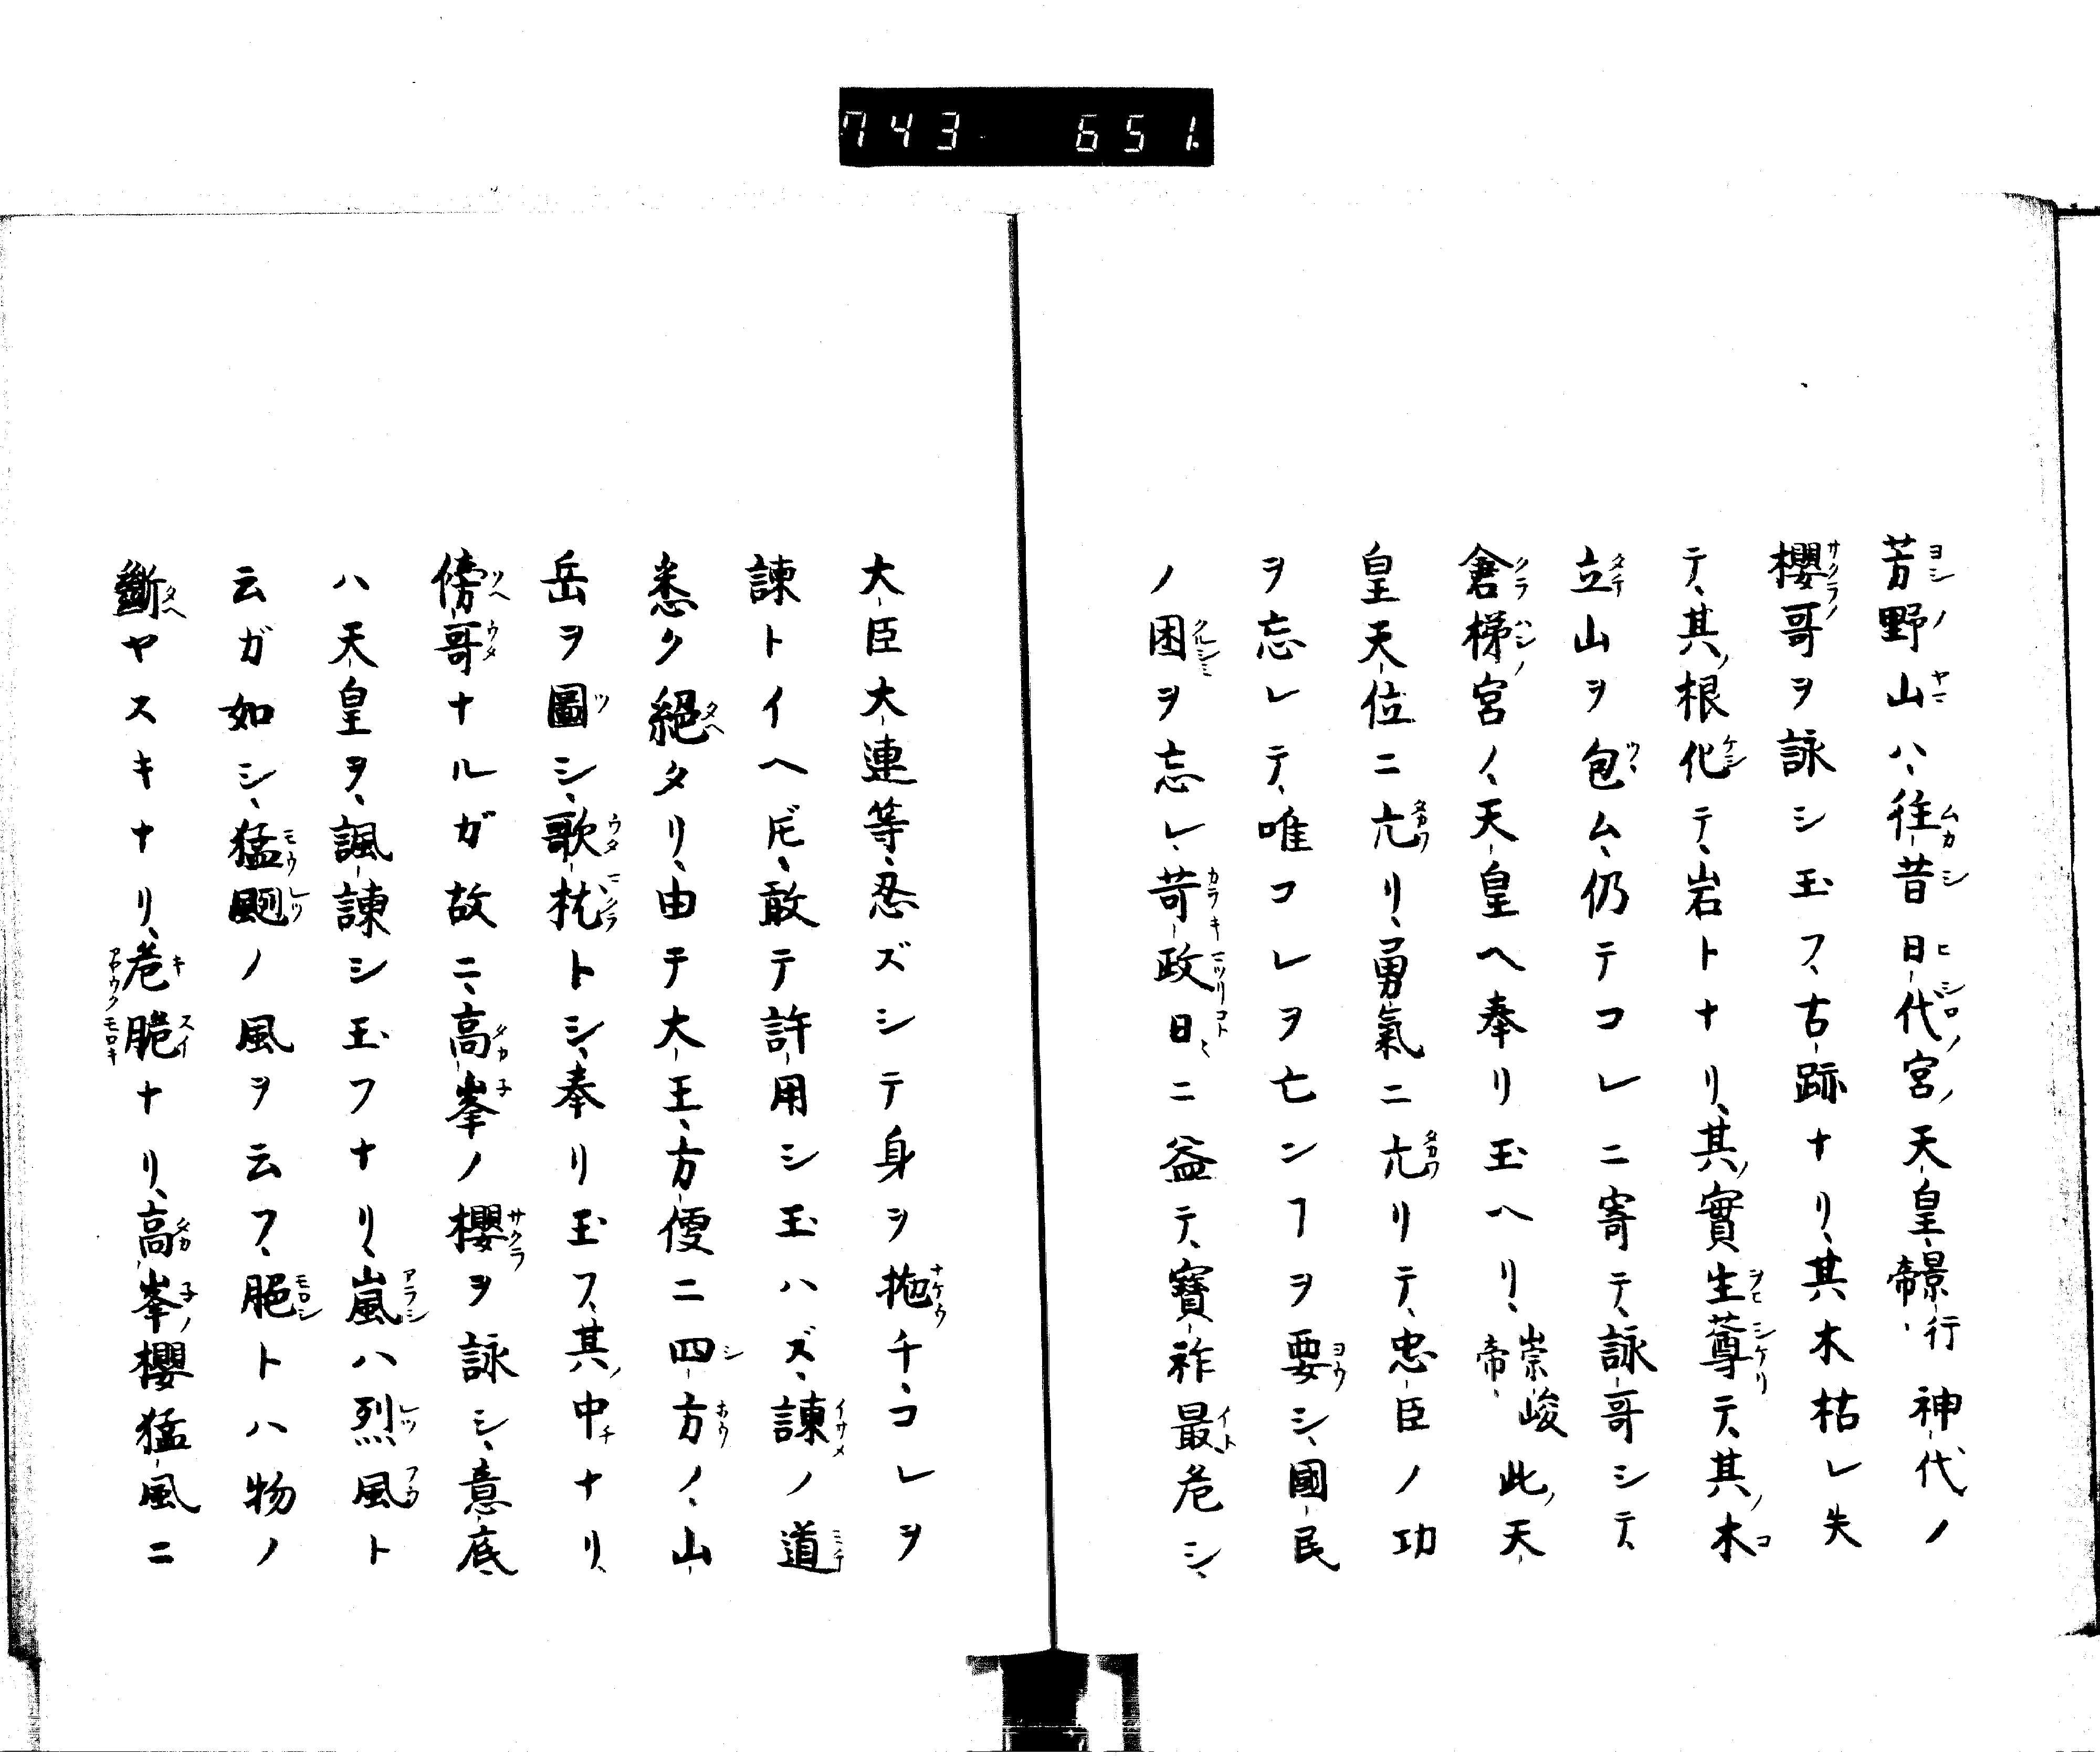 743 651
芳野山ハ、往昔日代宮ノ天皇景行帝、神代ノ
櫻哥ヲ詠シ玉フ、古跡ナリ、其木枯レ失
テ、其ノ根化テ、岩トナリ、其ノ實生蕚テ、其ノ木
立山ヲ包ム、仍テコレニ寄テ、詠哥シテ、
倉梯宮ノ、天皇ヘ奉リ玉ヘリ、崇峻帝、此ノ天
皇天位ニ亢リ、勇氣ニ亢リテ、忠臣ノ功
ヲ忘レテ、唯コレヲ亡ンヿヲ要シ、國民
ノ困ヲ忘レ、苛政日〻ニ益テ、寶祚最危シ、
大臣大連等、忍ズシテ身ヲ拖チ、コレヲ
諫トイヘ𪜈、敢テ許用シ玉ハズ、諫ノ道
悉ク絕タリ、由テ大王、方便ニ四方ノ、山
岳ヲ圖シ、歌枕トシ、奉リ玉フ、其ノ中ナリ、
傍哥ナルガ故ニ、高峯ノ櫻ヲ詠シ、意底
ハ天皇ヲ、諷諫シ玉フナリ、嵐ハ烈風ト
云ガ如シ、猛颲ノ風ヲ云フ、脆トハ物ノ
斷ヤスキナリ、危脆ナリ、高峯櫻猛風ニ